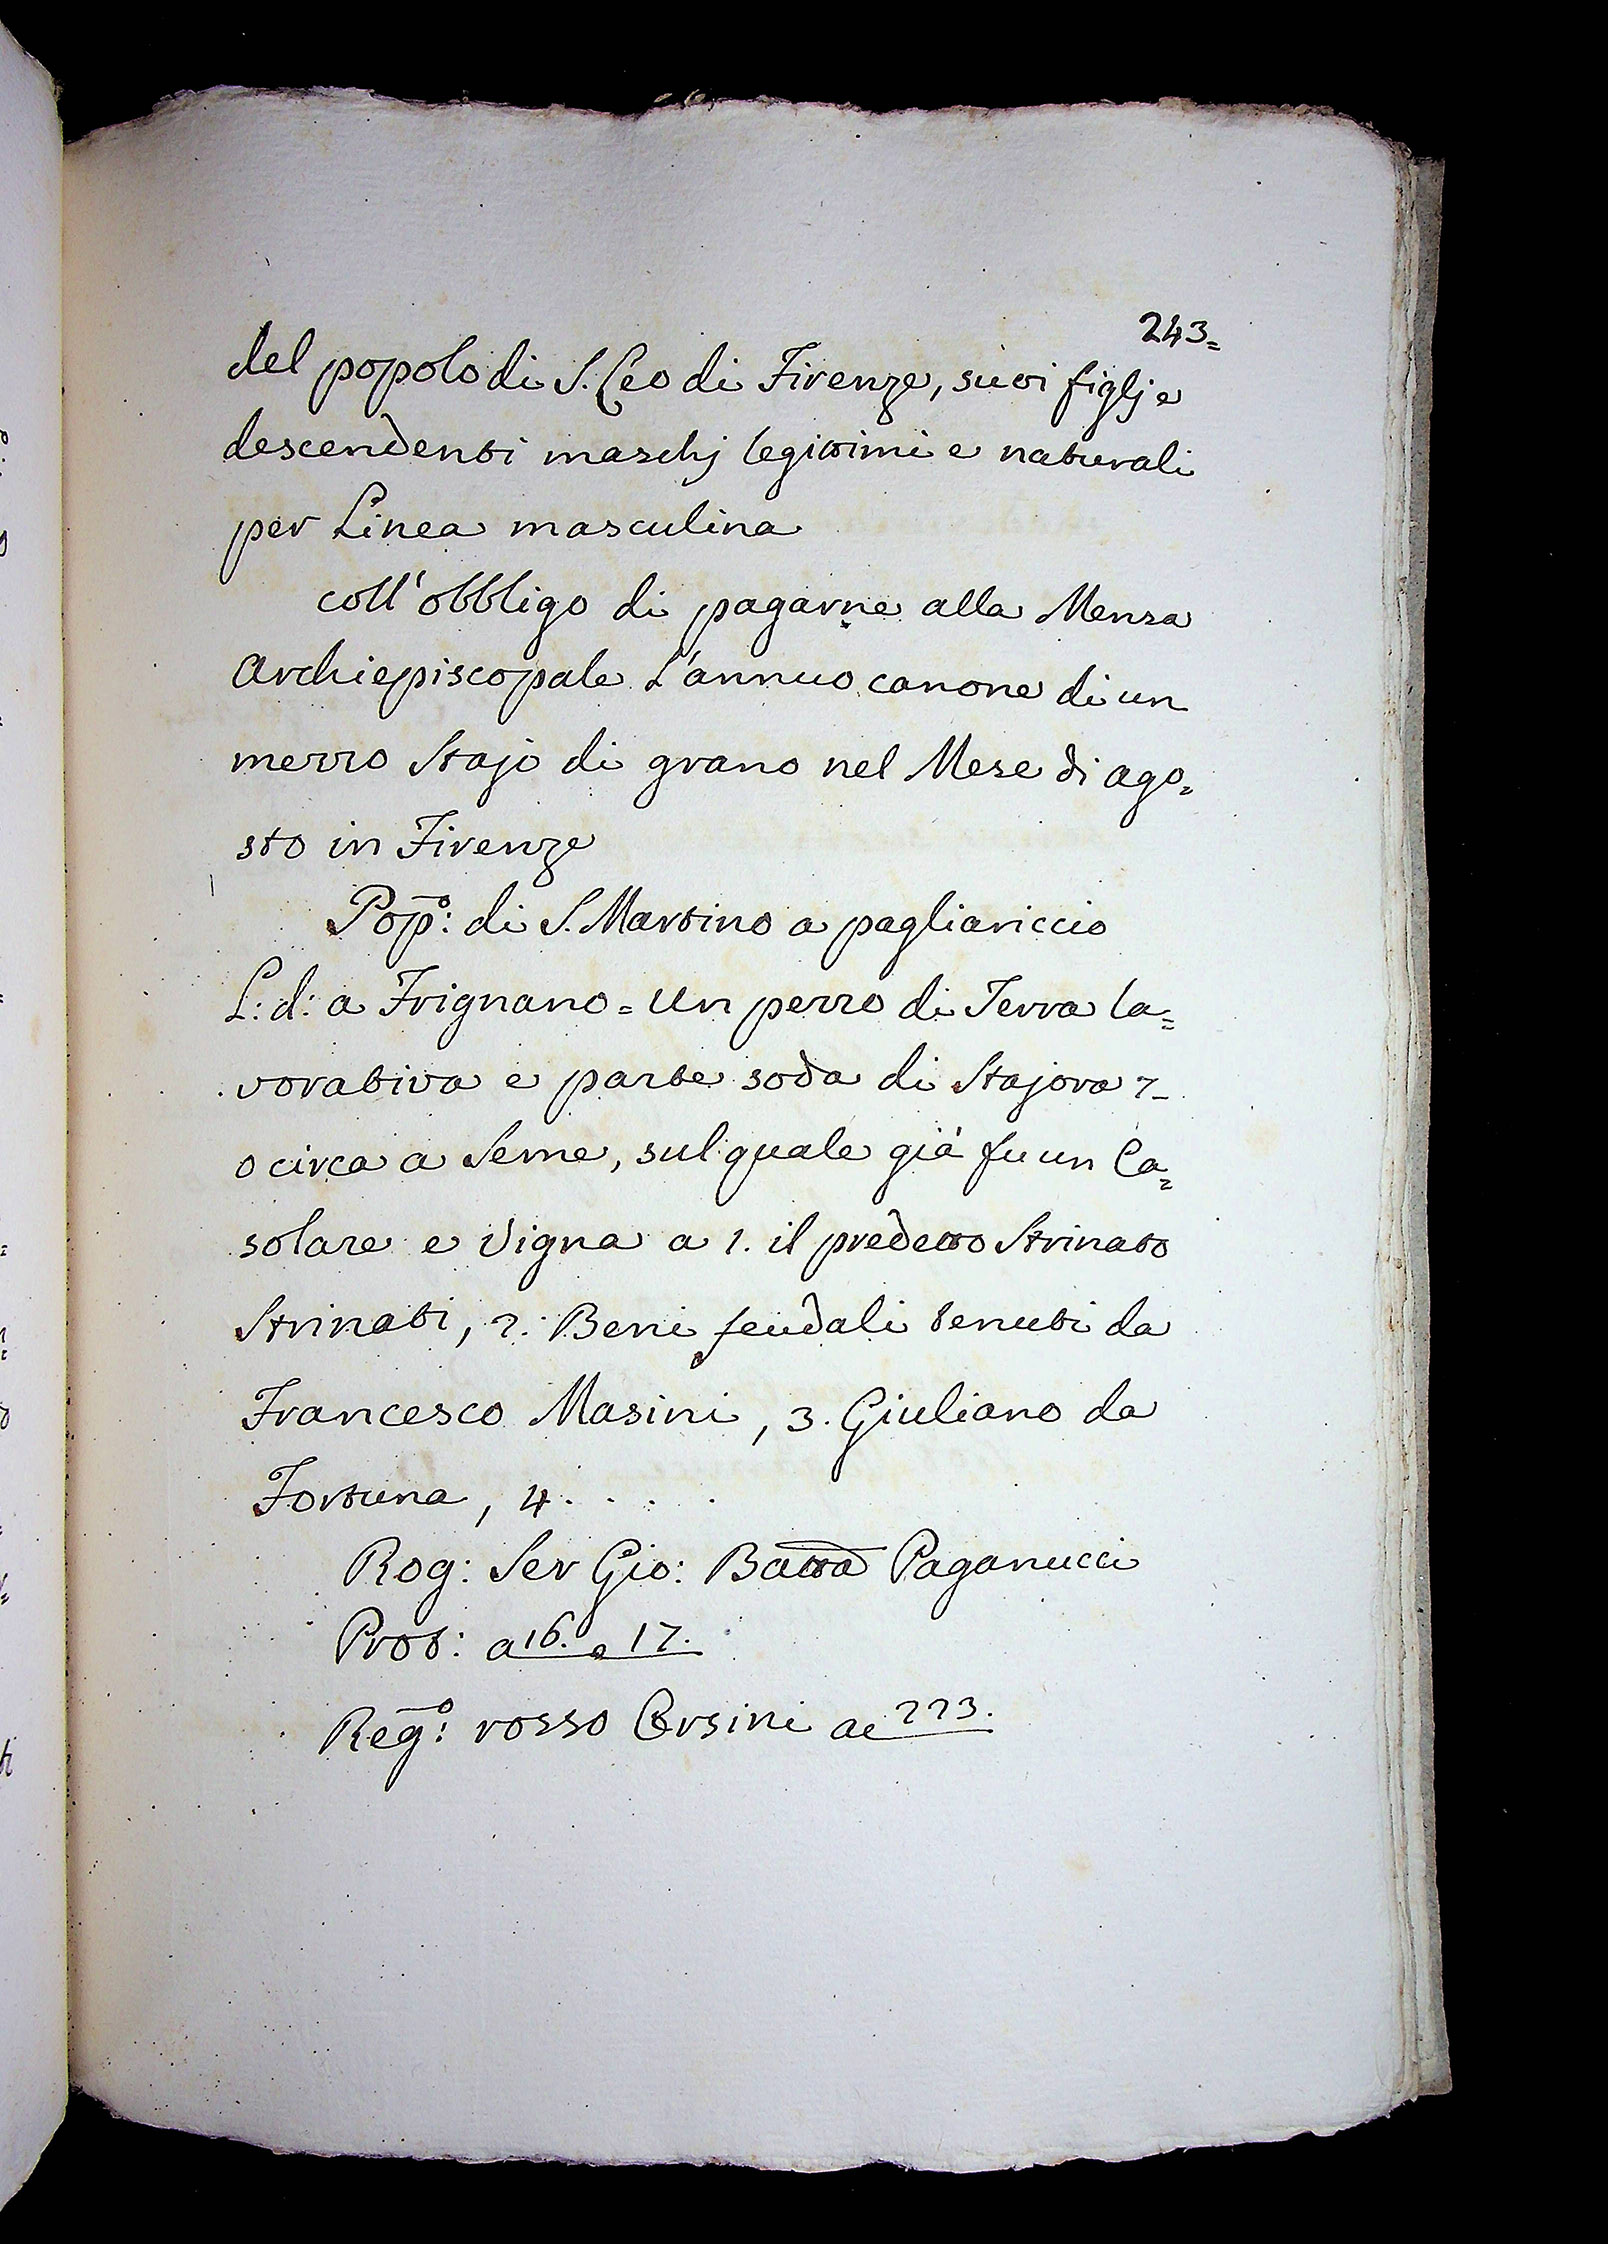 243=
del popolo di S. Leo di Firenze, suoi figlj e
descendenti maschj legittimi e naturali
per Linea masculina
coll'obbligo di pagarne alla Mensa
Archiepiscopale L'annuo canone di un
mezzo Stajo di grano nel Mese di ago=
sto in Firenze
Pop.o: di S. Martino a pagliariccio
L: d: a Frignano = Un pezzo di Terra la=
vorativa e parte soda di Stajora 2_
o circa a Seme, sul quale già fu un Ca=
solare e Vigna a 1. il predetto Strinato
Strinati, 2. Beni feudali tenuti da
Francesco Masini, 3. Giuliano da
Fortuna, 4. . . . .
Rog: Ser Gio: Batta Paganucci
Prot: a 16. e 17.
Reg.o: rosso Orsini ac 223.